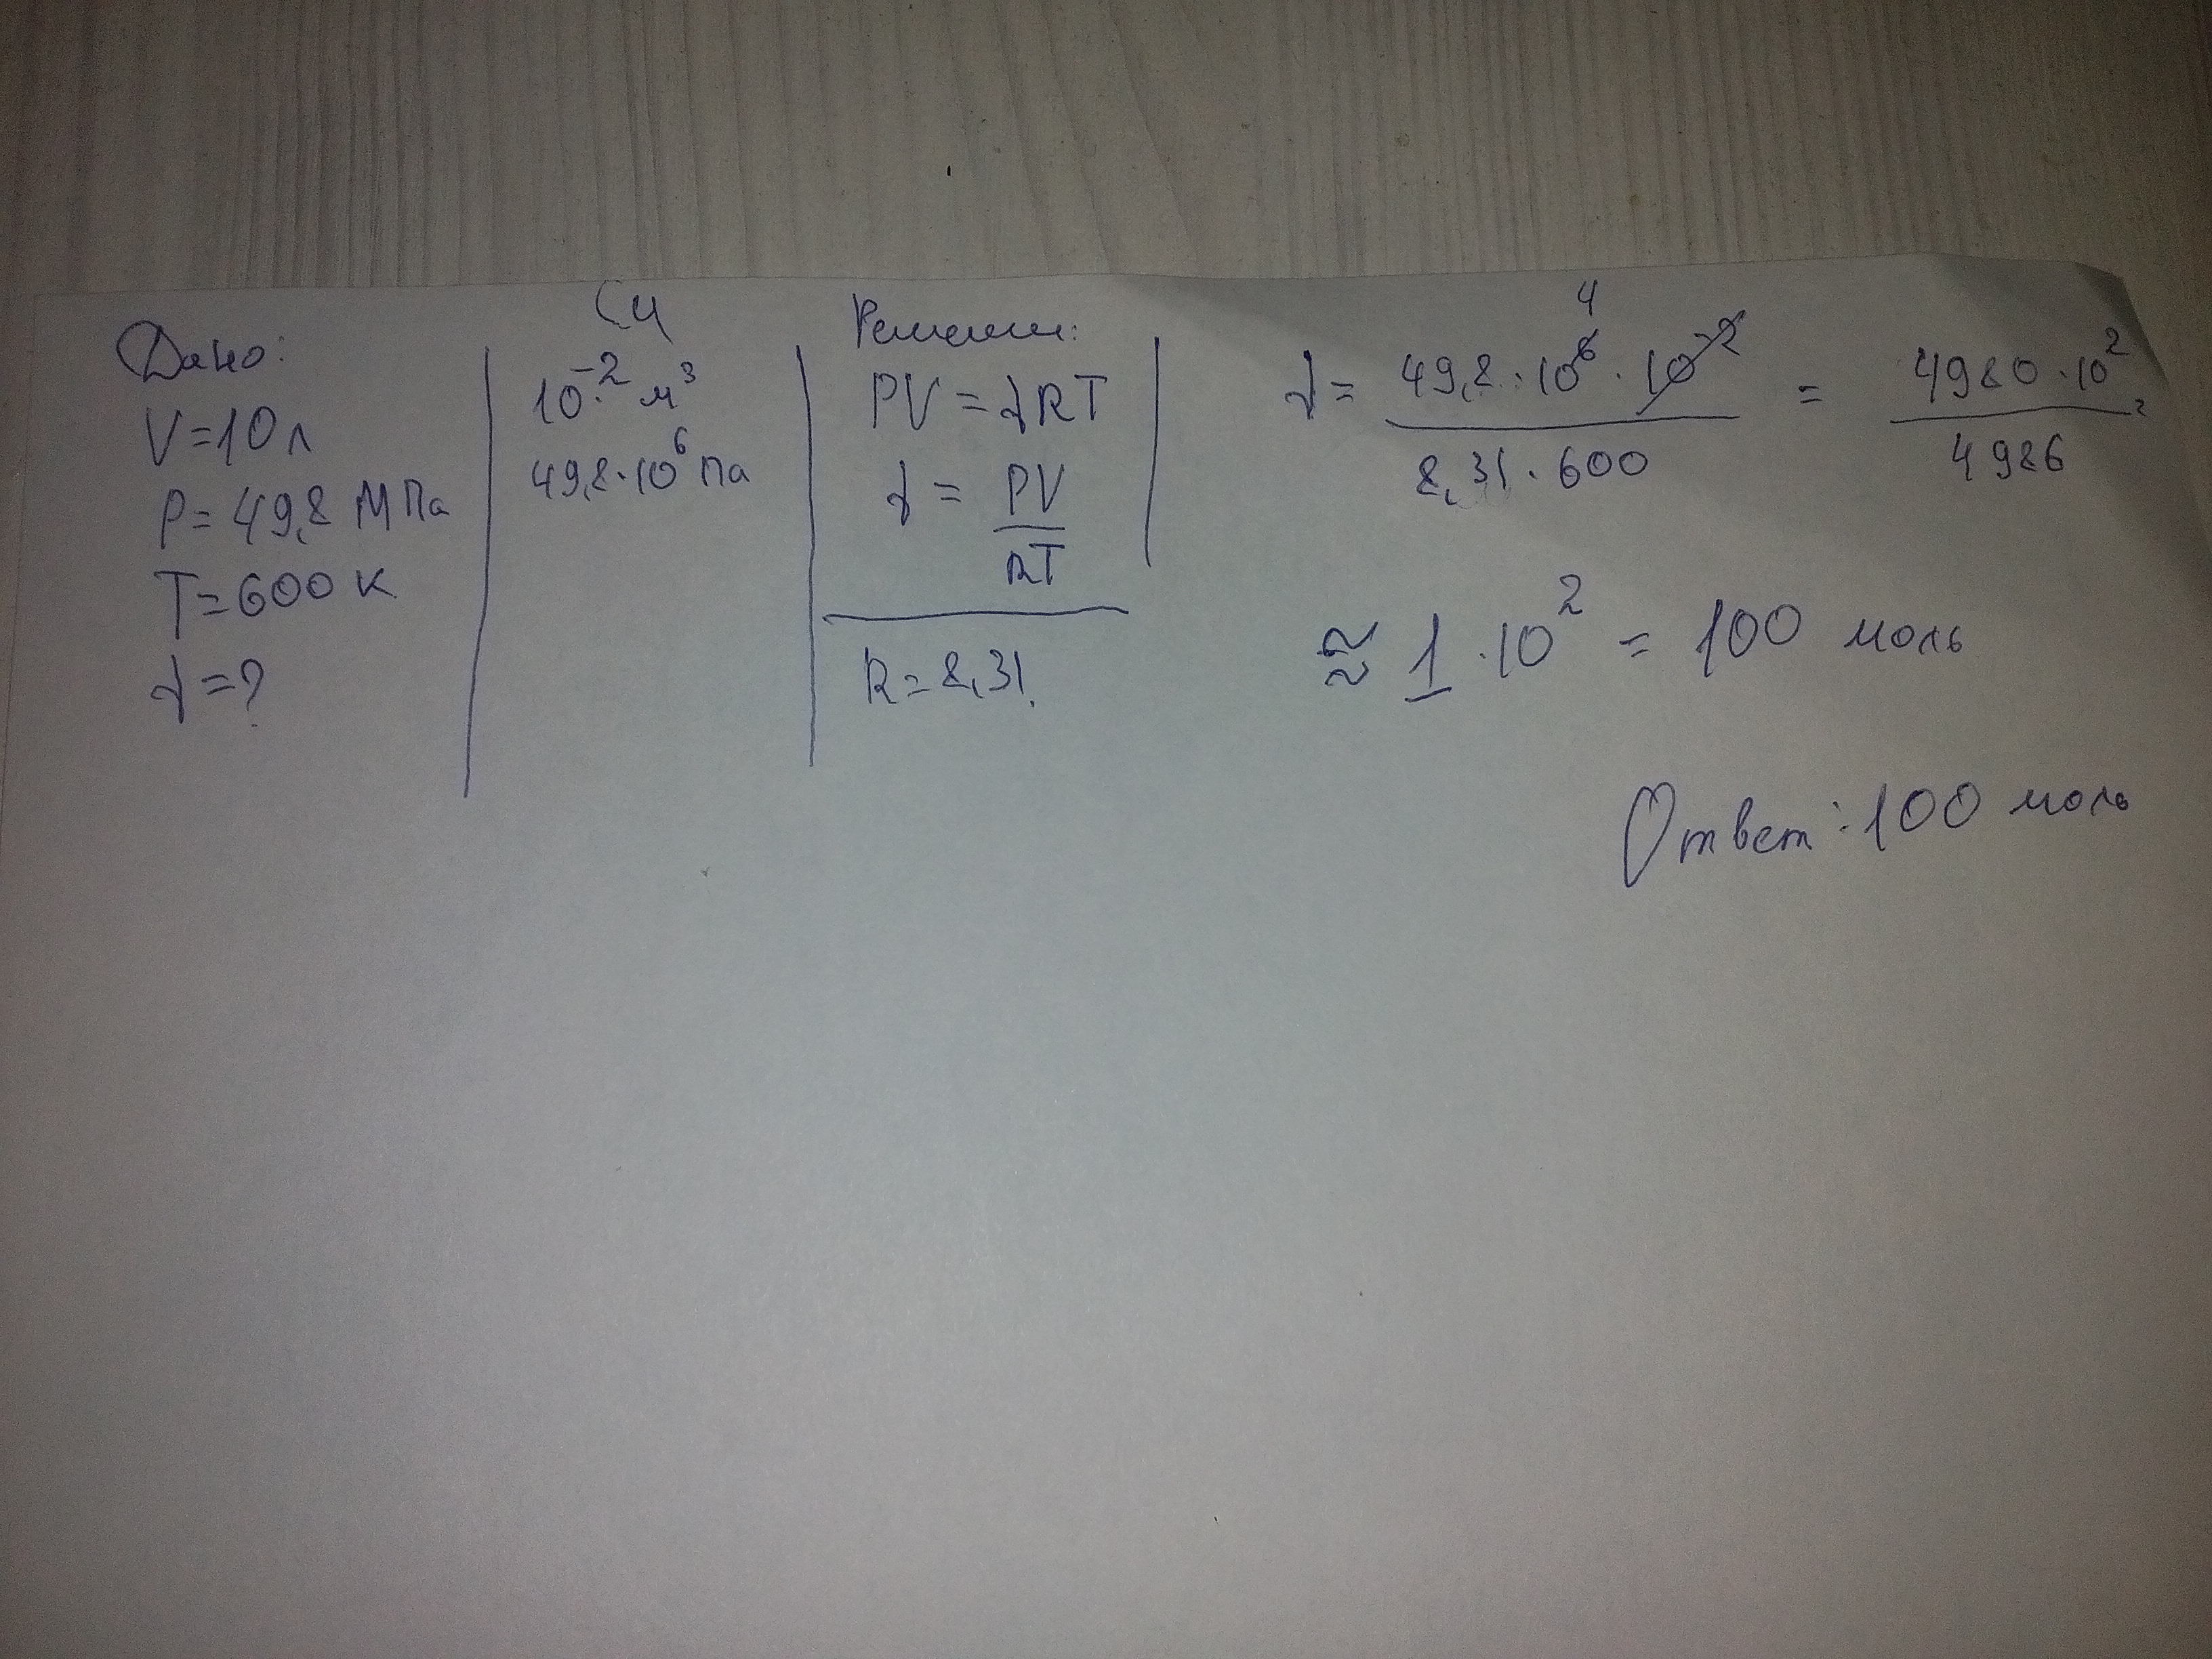 Дано:
V=10л
P=49,8 МПа
T=600 К
ν=?
Си
10⁻² м³
49,8·10⁶ Па
Решение:
PV=νRT
ν= PV
RT
R=8,31
4
ν= 49,8·10⁶·10⁻² = 4980·10²
8,31·600 4986
≈ 1·10² = 100 моль
Ответ: 100 моль